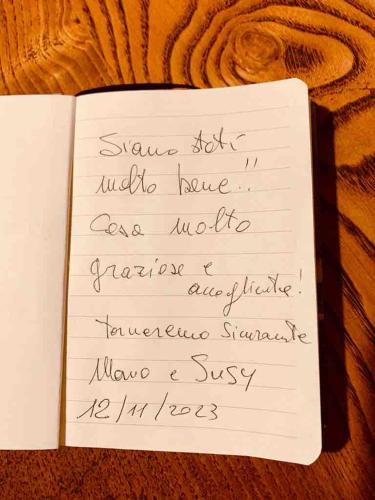 Siamo stati
molto bene!!
Casa molto
graziosa e
accogliente!
torneremo sicuramente
e Susy
12/11/2023